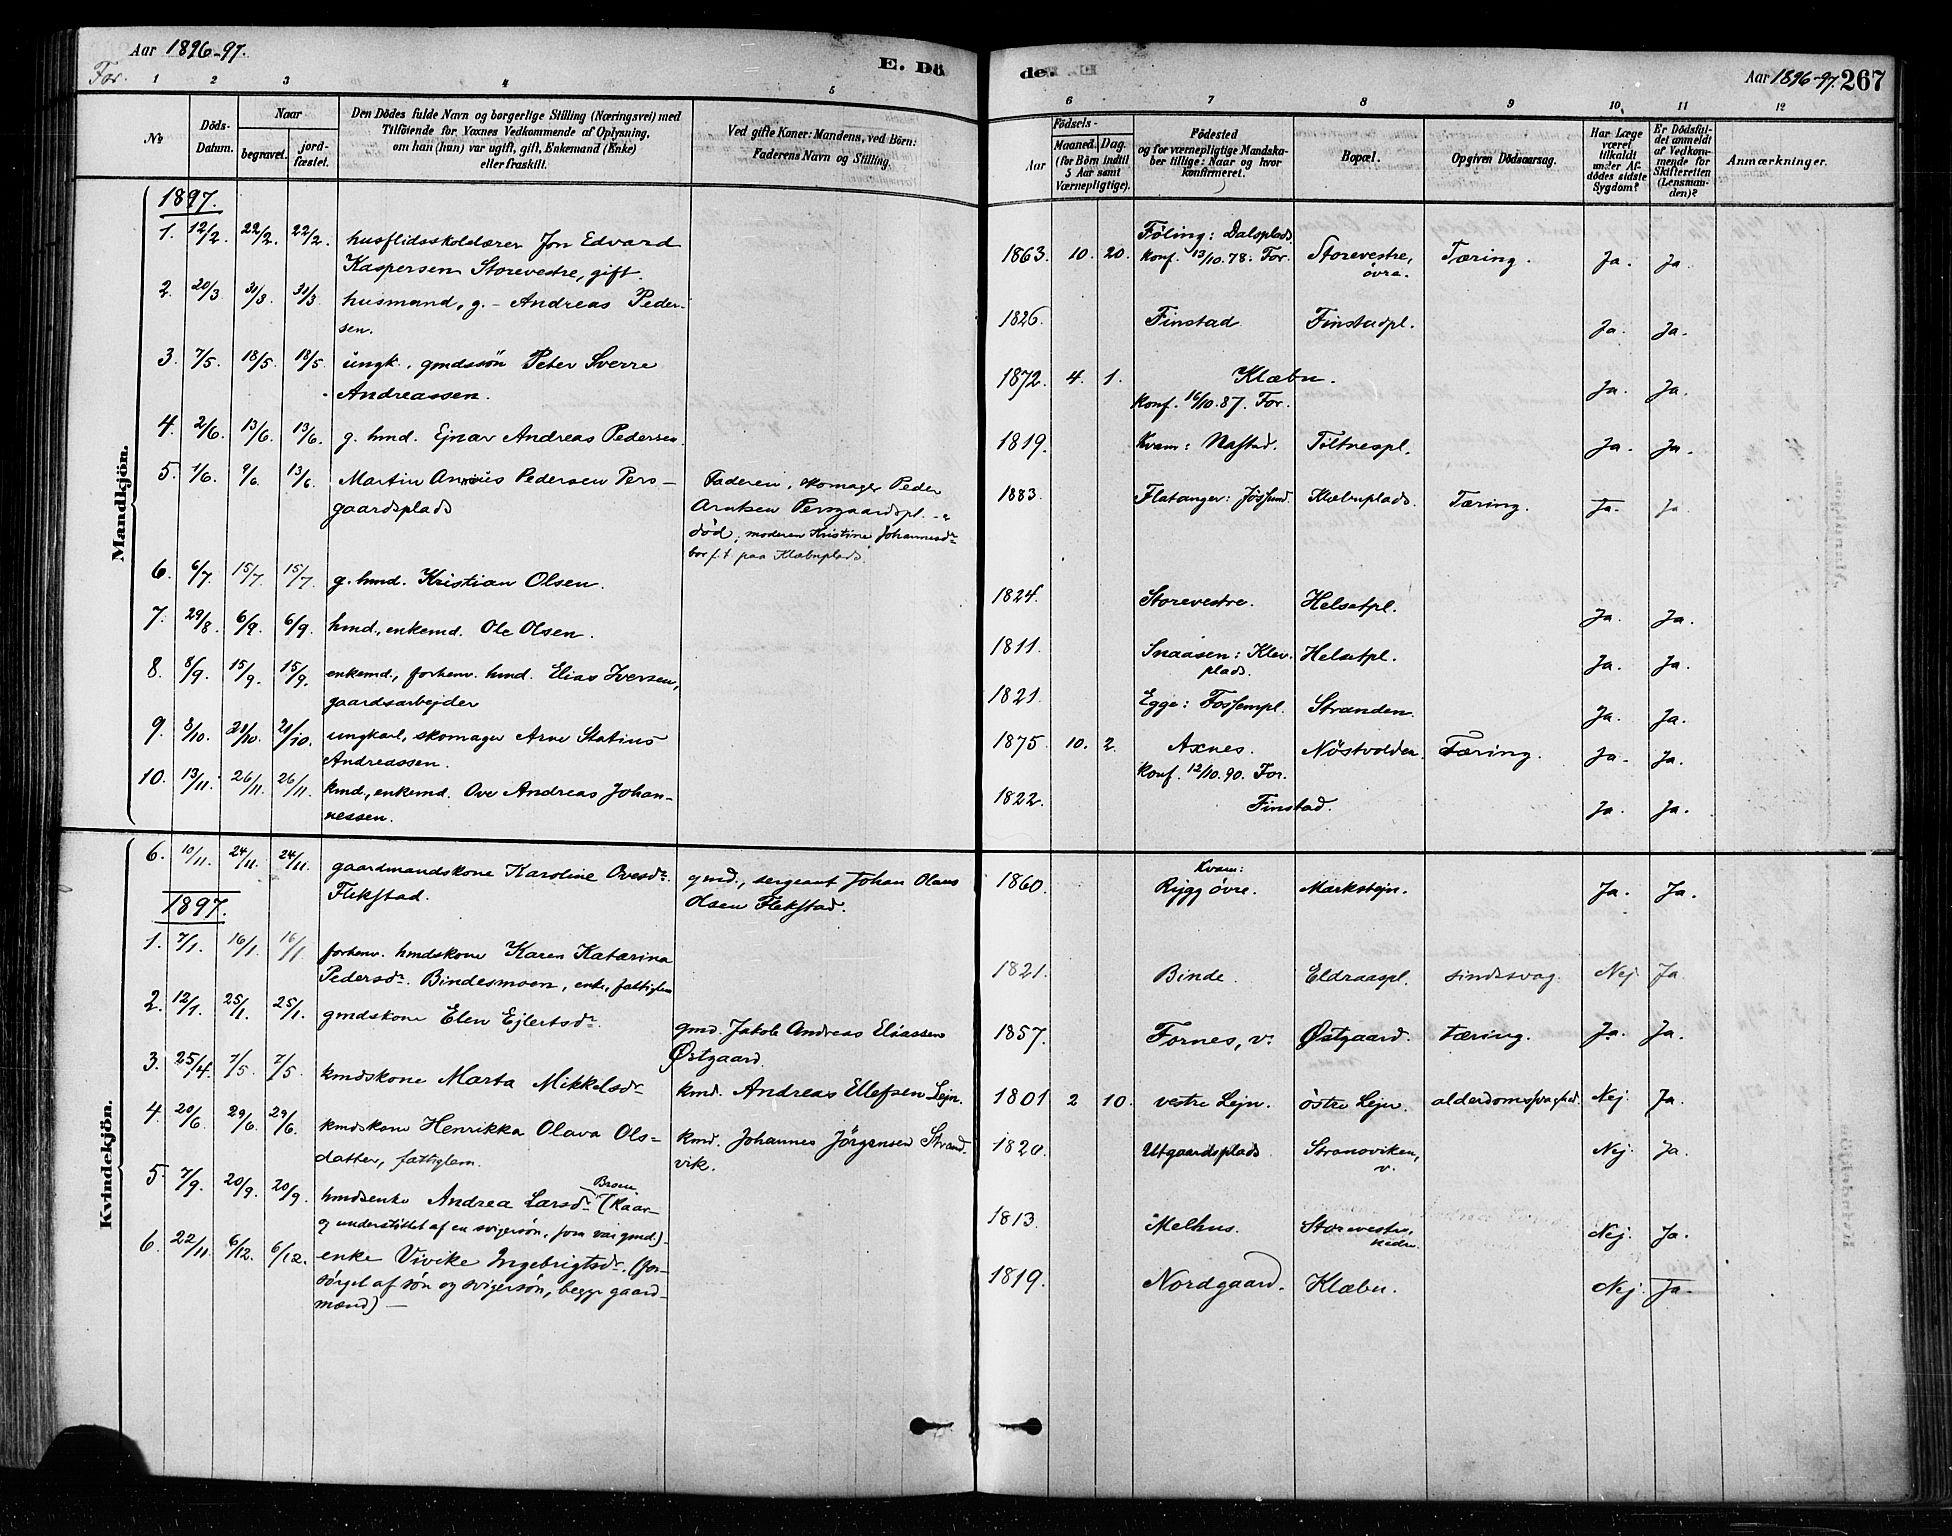 Aar 1896-97.
For.
E. Dö
de.
Aar 1896-97. 267
1 2 3 4 5 6 7 8 9 10 11 12
No
Döds-Datum.
Naar
begravet.
jord-fæstet.
Den Dödes fulde Navn og borgerlige Stilling (Næringsvei) med
Tilföiende for Voxnes Vedkommende af Oplysning,
om han (hun) var ugift, gift, Enkemand (Enke)
eller fraskilt.
Ved gifte Koner: Mandens, ved Börn:
Faderens Navn og Stilling.
Födsels-
Aar
Maaned. Dag.
(for Börn indtil
5 Aar samt
Værnepligtige).
Födested
og for værnepligtige Mandska-
ber tillige: Naar og hvor
konfirmeret.
Bopæl.
Opgiven Dödsaarsag.
Har Læge
været
tilkaldt
under Af-
dödes sidste
Sygdom?
Er Dödsfal-
det anmeldt
af Vedkom-
mende for
Skifteretten
(Lensman-
den)?
Anmærkninger.
Mandkjön.
1897.
1. 12/2. 22/2. 22/2. husflidsskolelærer Jon Edvard
Kaspersen Storevestre, gift. 1863. 10. 20. Føling: Dalsplads.
konf. 13/10.78: For. Storevestre,
övra. Tæring. Ja. Ja.
2. 20/3 31/3 31/3 husmand, g. - Andreas Peder-
sen. 1826. Finstad Finstadpl. Ja. Ja.
3. 7/5. 18/5. 18/5. ungk., gmdssön Peter Sverre
Andreassen. 1872. 4. 1. Klæbu.
Konf. 16/10.87. For. Ja. Ja.
4. 2/6. 13/6. 13/6. g. hmd. Ejnar Andreas Pedersen. 1819. Kvam: Nastad. Töltnespl. Ja. Ja.
5. 1/6. 9/6. 13/6. Martin Pedersen Pers-
gaardsplads Faderen, skomager Peder
Arntsen Persgaardspl. -
død, moderen Kristine Johannesdr.
bor f.t. paa Klæbuplads. 1883. Flatanger: Jössund Klæbuplads. Tæring. Ja. Ja.
6. 6/7. 15/7. 15/7. g. hmd. Kristian Olsen. 1824. Storevestre. Helsetpl. Ja. Ja.
7. 29/8 6/9. 6/9. hmd., enkemd. Ole Olsen. 1811. Snaasen: Klev-
plads. Helsetpl. Ja. Ja.
8. 8/9. 15/9. 15/9. enkemd., forhenv. hmd. Elias Iversen,
gaardsarbejder 1821. Egge: Fossempl. Stranden. Ja. Ja.
9. 8/10. 21/10. 21/10. ungkarl, skomager Arne Statius
Andreassen. 1875. 10. 2. Axnes.
Konf. 12/10.90. For. Nöstvolden Tæring. Ja. Ja.
10. 13/11. 26/11. 26/11. kmd., enkemd. Ove Andreas Johan-
nessen. 1822. Finstad. Ja. Ja.
Kvindekjön.
6. 10/11. 24/11. 24/11. gaardmandskone Karoline Ovesdr.
Flekstad. gmd., sergeant Johan Olaus
Olsen Flekstad. 1860. Kvam:
Rygg övre. Markstejn. Ja. Ja.
1897.
1. 7/1. 16/1. 16/1. forhenv. hmdskone Karen Katarina
Pedersdr. Bindesmoen, enke, fattiglem 1821. Binde. Eldraaspl. sindssvag. Nej. Ja.
2. 12/1. 25/1. 25/1. gmdskone Elen Ejlertsdr. gmd. Jakob Andreas Eliassen
Østgaard. 1857. Fornes, v. Østgaard. tæring. Ja. Ja.
3. 25/4. 7/5. 7/5. kmdskone Marta Mikkelsdr. kmd. Andreas Ellefsen Lejn. 1801 2 10. vestre Lejn. östre Lejn. alderdomssvaghed. Nej. Ja.
4. 20/6. 29/6. 29/6. kmdskone Henrikka Olava Ols-
datter, fattiglem. kmd. Johannes Jörgensen Strand-
vik. 1820. Utgaardsplads Strandviken,
v. Nej. Ja.
5. 7/9. 20/9. 20/9. hmdsenke Andrea Larsdr. (kaar-
og understöttet af en svigersön, som var gmd.) - 1813. Melhus. Storevestre,
nedre. Nej. Ja.
6. 22/11. 6/12. 6/12. enke Vivike Ingebrigtsdr. (for-
sörget af sön og svigersön, begge gaard-
mænd) - 1819. Nordgaard. Klæbu. Nej. Ja.